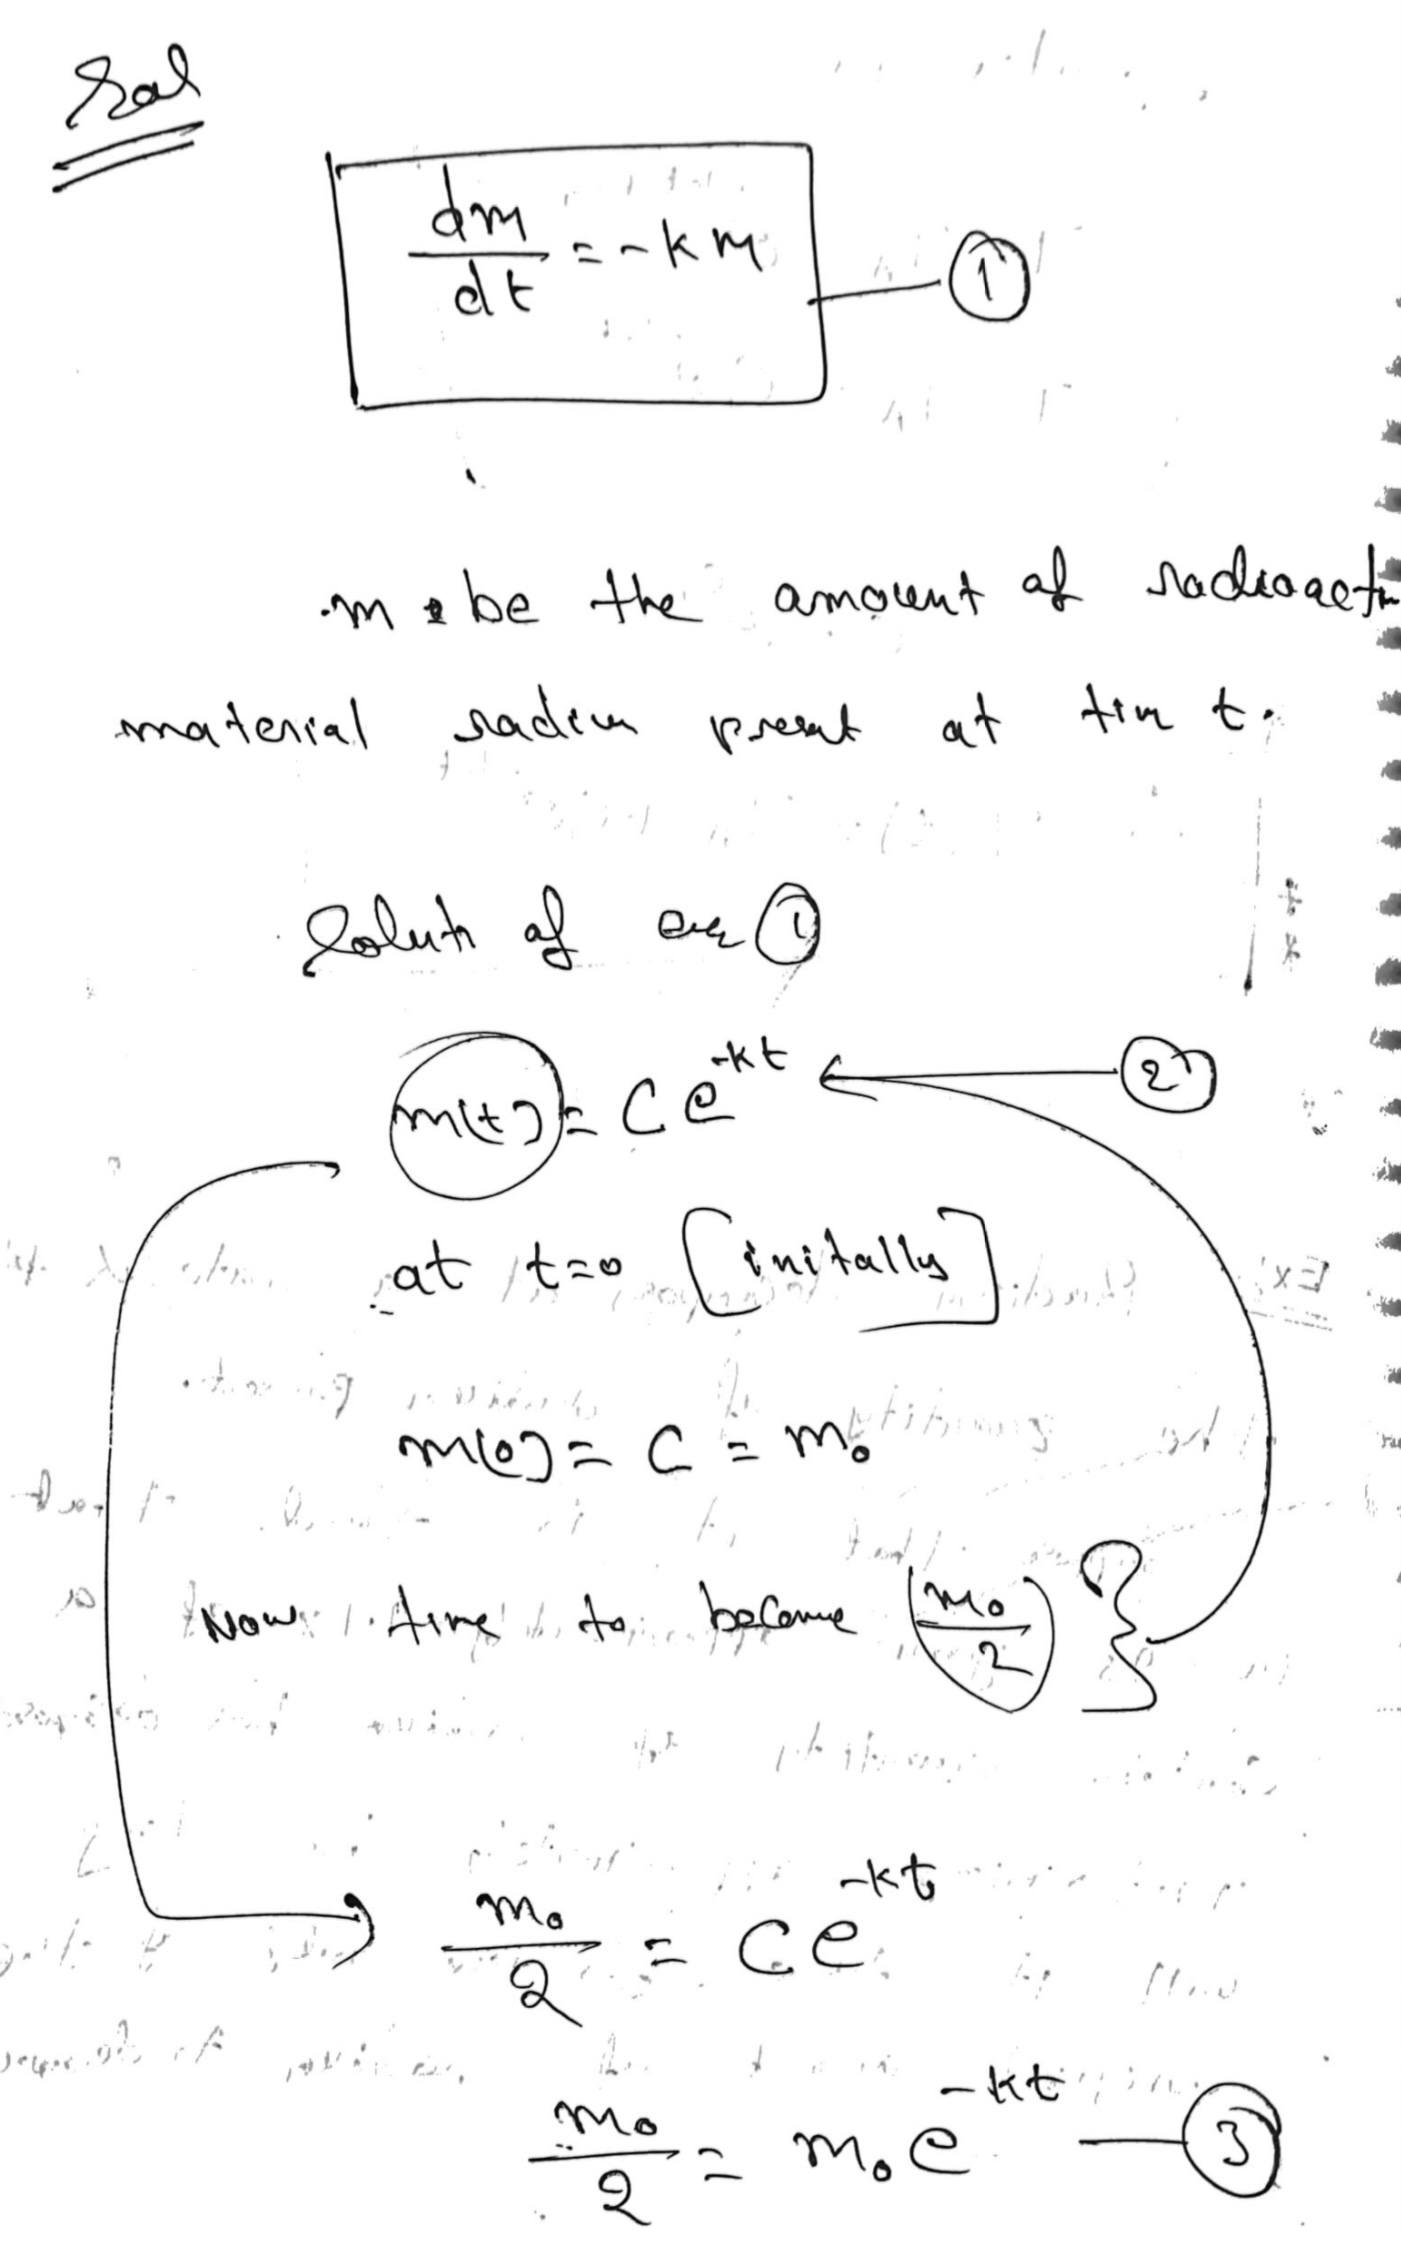 Sol
dm/dt = -km — ①
m be the amount of radioacti
material radium present at tim t.
Solutn of eq ①
m(t) = C e^{-kt} ← ②
at t=0 [initally]
m(0) = C = m₀
Now time to become (m₀/2) }
m₀/2 = C e^{-kt}
m₀/2 = m₀ e^{-kt} — ③